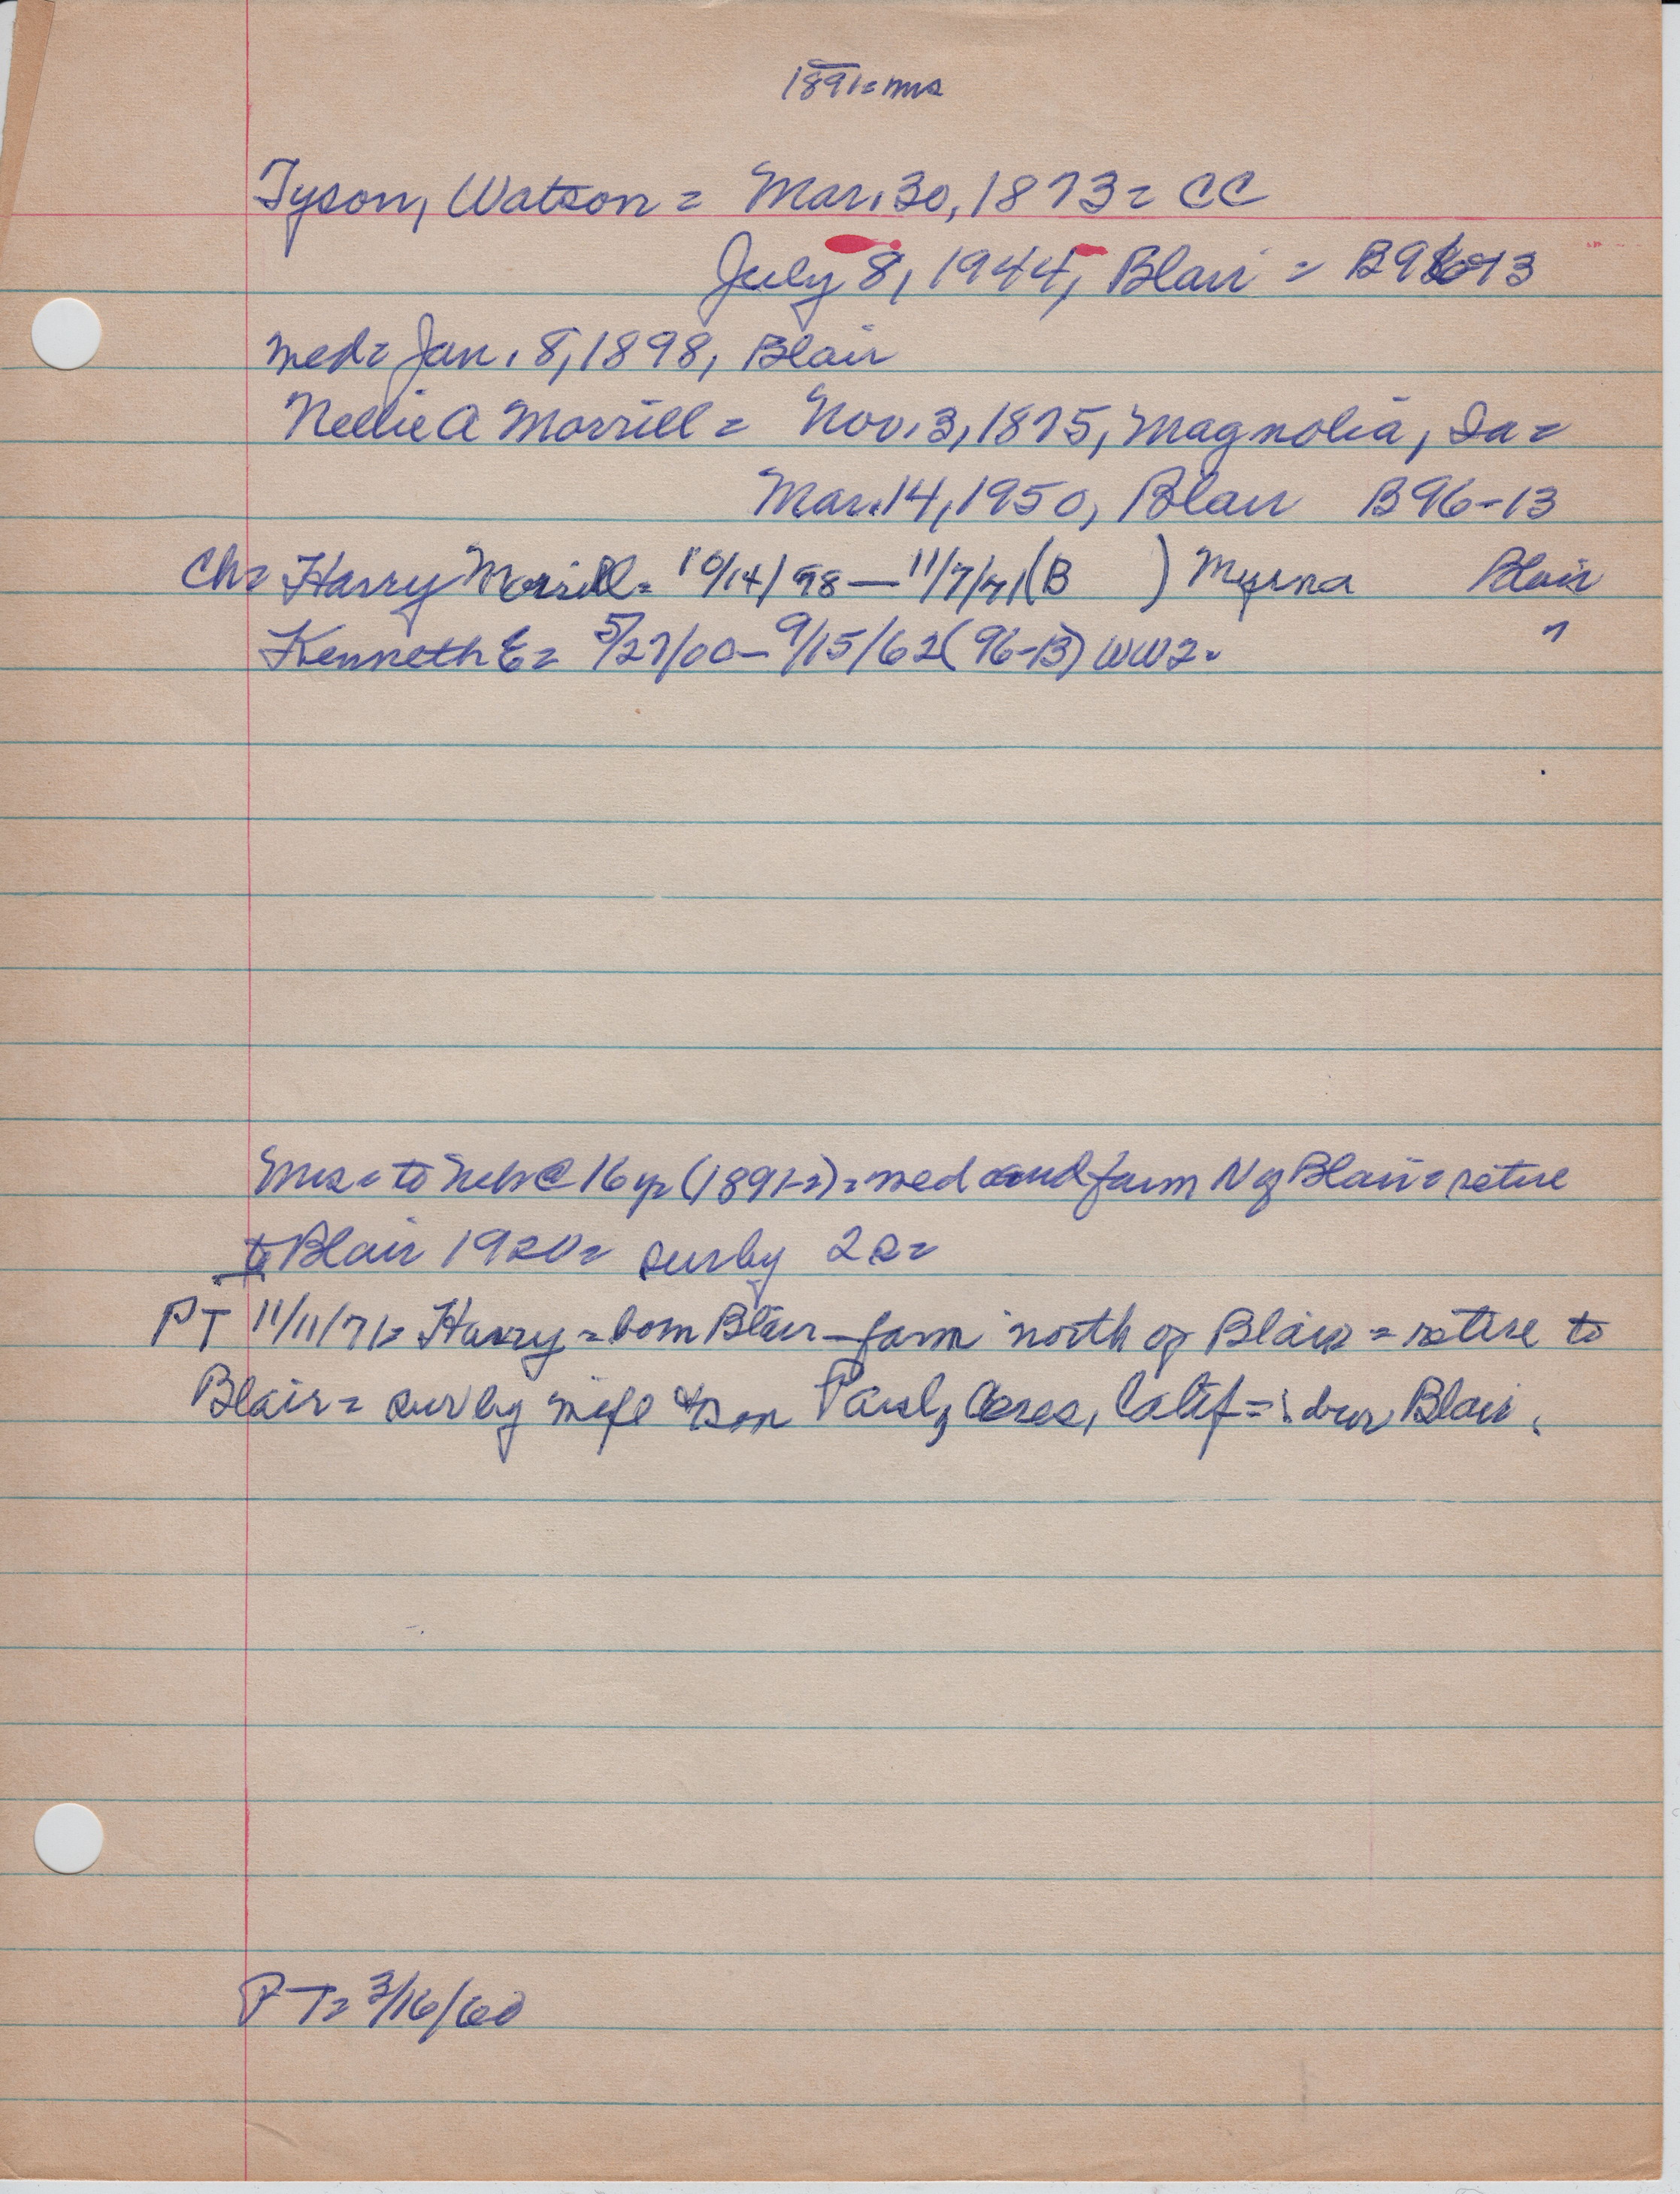 1891=mrs
Tyson, Watson = Mar. 30, 1873 = CC
July 8, 1944, Blair = B96-13
med= Jan. 8, 1898, Blair
Nellie A Morrill = Nov. 3, 1875, Magnolia, Ia =
Mar. 14, 1950, Blair B96-13
Ch= Harry Morrill= 10/14/98 — 11/7/71 (B ) Myrna Blair
Kenneth E= 5/27/00 - 9/15/62 (96-13) WW2. "
Mrs = to Neb @ 16 yr (1891-2) = med and farm N of Blair = retire
to Blair 1920= surby 2s=
PT 11/11/71= Harry = born Blair - farm north of Blair = retire to
Blair = surby wife & son Paul, Ceres, Calif = bur Blair.
PT= 3/16/60